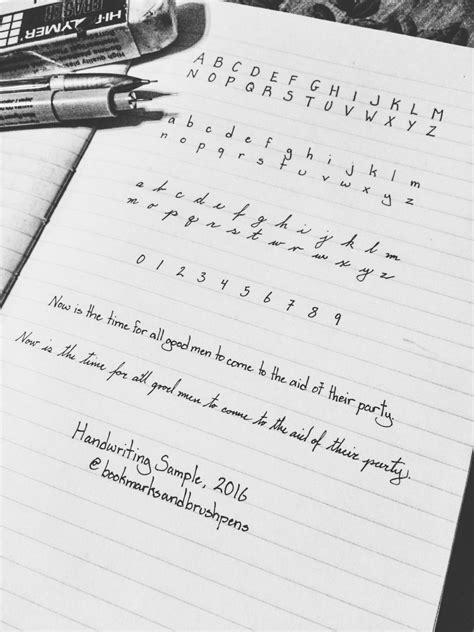 HI-POLYMER
High quality
A B C D E F G H I J K L M
N O P Q R S T U V W X Y Z
a b c d e f g h i j k l m
n o p q r s t u v w x y z
a b c d e f g h i j k l m
n o p q r s t u v w x y z
0 1 2 3 4 5 6 7 8 9
Now is the time for all good men to come to the aid of their party.
Now is the time for all good men to come to the aid of their party.
Handwriting Sample, 2016
@bookmarksandbrushpens